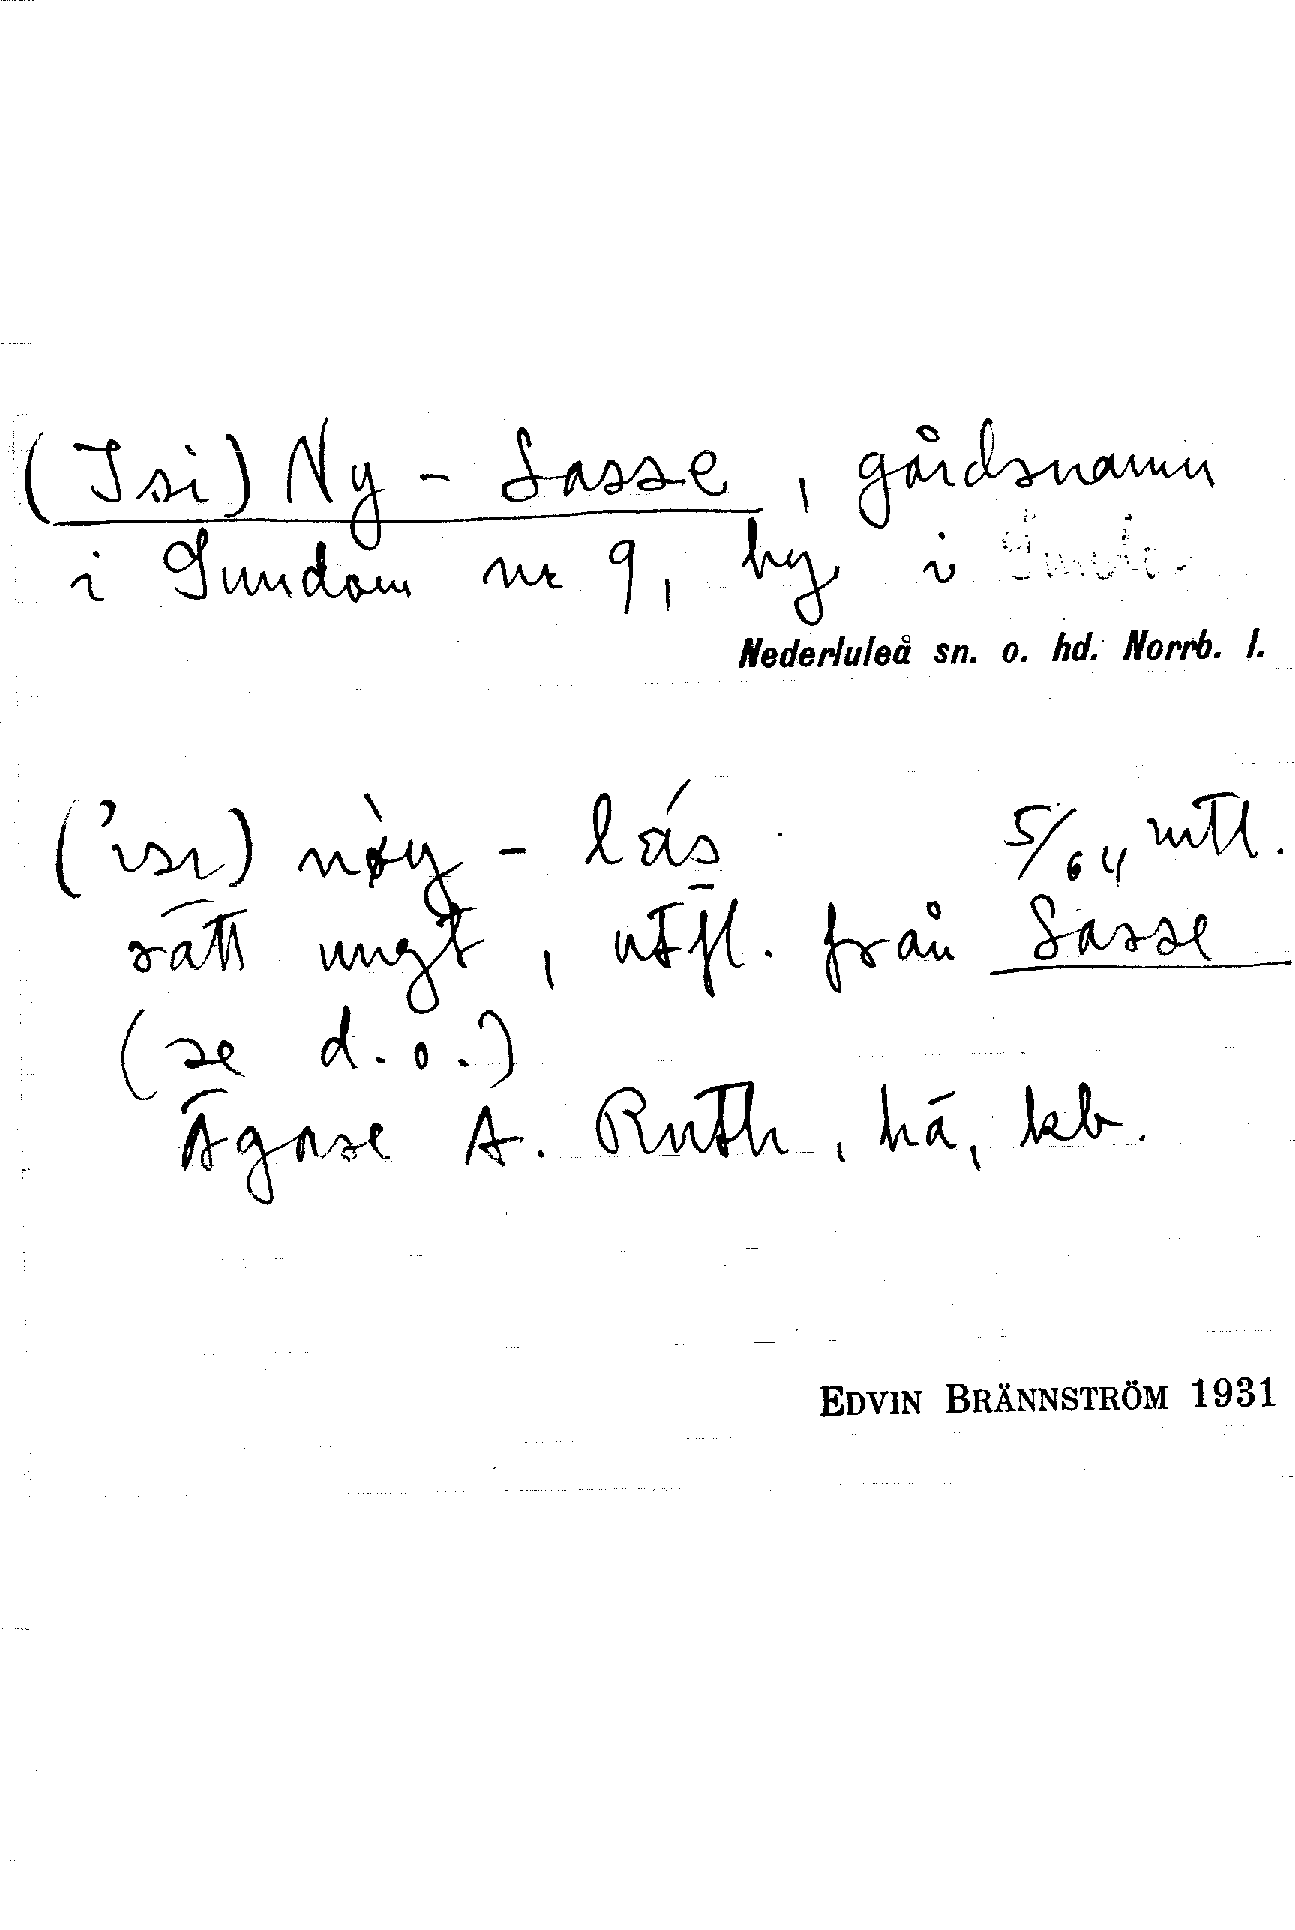 (Isi) Ny-Lasse, gårdsnamn
i Sundom nr 9, by i
Nederluleå sn. o. hd. Norrb. l.
('ısı) nøy - lás 5/64 mtl.
rätt ungt, utfl. från Lasse
(se d.o.)
Ägare A. Ruth, hä, kb.
EDVIN BRÄNNSTRÖM 1931